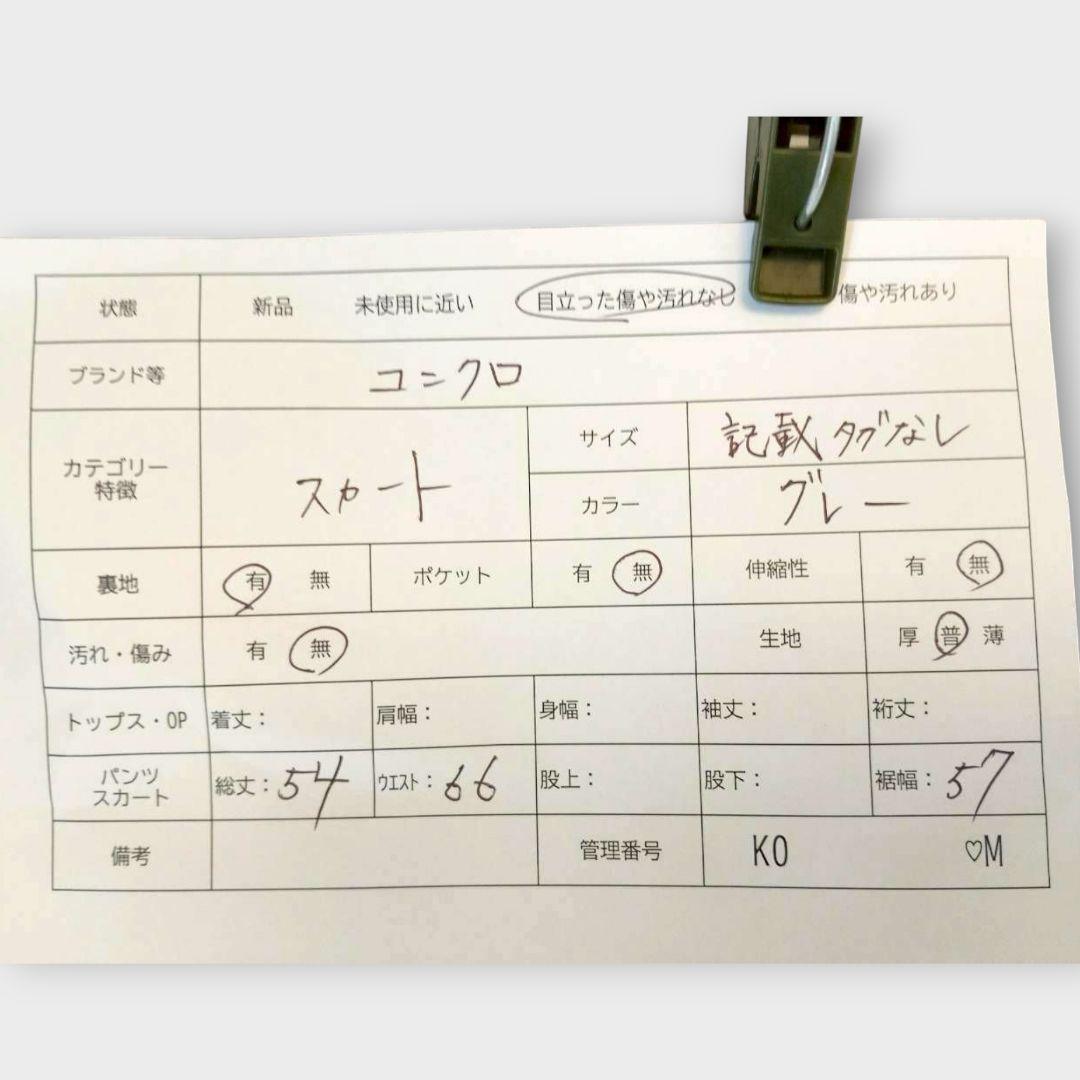 状態 新品 未使用に近い 目立った傷や汚れなし 傷や汚れあり
ブランド等 コニクロ
カテゴリー 特徴 スカート サイズ 記載タグなし
カラー グレー
裏地 有 無 ポケット 有 無 伸縮性 有 無
汚れ・傷み 有 無 生地 厚 普 薄
トップス・OP 着丈: 肩幅: 身幅: 袖丈: 裄丈:
パンツ スカート 総丈:54 ウエスト:66 股上: 股下: 裾幅:57
備考 管理番号 KO ♡M